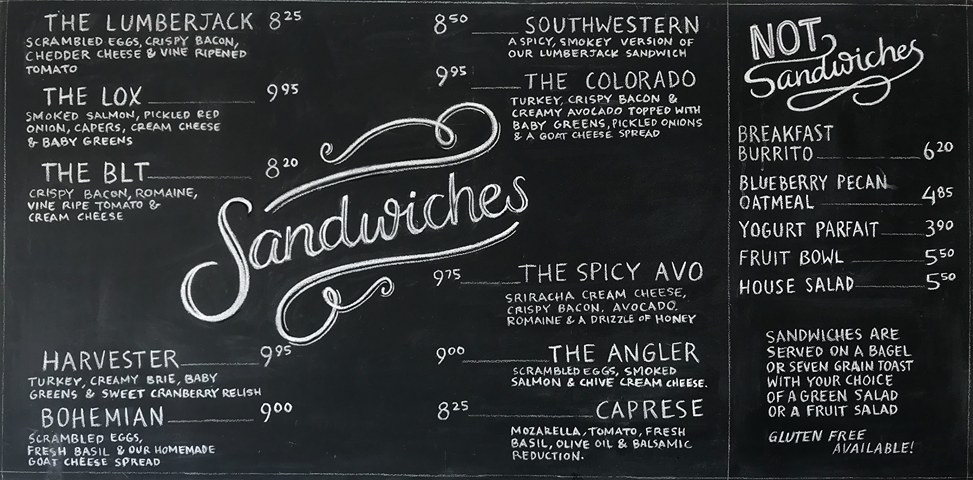 THE LUMBERJACK 8 25
SCRAMBLED EGGS, CRISPY BACON,
CHEDDER CHEESE & VINE RIPENED
TOMATO
THE LOX 9 95
SMOKED SALMON, PICKLED RED
ONION, CAPERS, CREAM CHEESE
& BABY GREENS
THE BLT 8 20
CRISPY BACON, ROMAINE,
VINE RIPE TOMATO &
CREAM CHEESE
Sandwiches
HARVESTER 9 95
TURKEY, CREAMY BRIE, BABY
GREENS & SWEET CRANBERRY RELISH
BOHEMIAN 9 00
SCRAMBLED EGGS,
FRESH BASIL & OUR HOMEMADE
GOAT CHEESE SPREAD
8 50 SOUTHWESTERN
A SPICY, SMOKEY VERSION OF
OUR LUMBERJACK SANDWICH
9 95 THE COLORADO
TURKEY, CRISPY BACON &
CREAMY AVOCADO TOPPED WITH
BABY GREENS, PICKLED ONIONS
& A GOAT CHEESE SPREAD
9 75 THE SPICY AVO
SRIRACHA CREAM CHEESE,
CRISPY BACON, AVOCADO,
ROMAINE & A DRIZZLE OF HONEY
9 00 THE ANGLER
SCRAMBLED EGGS, SMOKED
SALMON & CHIVE CREAM CHEESE.
8 25 CAPRESE
MOZARELLA, TOMATO, FRESH
BASIL, OLIVE OIL & BALSAMIC
REDUCTION.
NOT
Sandwiches
BREAKFAST
BURRITO 6 20
BLUEBERRY PECAN
OATMEAL 4 85
YOGURT PARFAIT 3 90
FRUIT BOWL 5 50
HOUSE SALAD 5 50
SANDWICHES ARE
SERVED ON A BAGEL
OR SEVEN GRAIN TOAST
WITH YOUR CHOICE
OF A GREEN SALAD
OR A FRUIT SALAD
GLUTEN FREE
AVAILABLE!